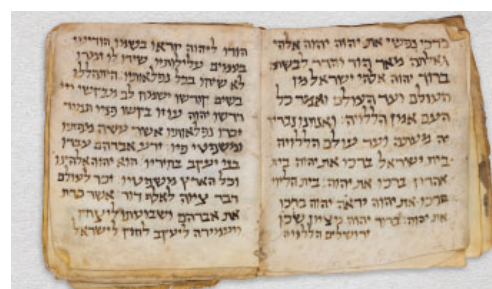 ברכי נפשי את יהוה יהוה אלהי
גדלתה מאד הוד והדר לבשת:
ברוך יהוה אלהי ישראל מן
העולם ועד העולם ואמר כל
העם אמן הללויה: ואנחנו נברך
יה מעתה ועד עולם הללויה
בית ישראל ברכו את יהוה בית
אהרון ברכו את יהוה: בית הלוי
ברכו את יהוה יראי יהוה ברכו
את יהוה: ברוך יהוה מציון שכן
ירושלים הללויה
הודו ליהוה קראו בשמו הודיעו
בעמים עלילותיו שירו לו זמרו
לו שיחו בכל נפלאותיו: התהללו
בשם קודשו ישמח לב מבקשי ייי
דרשו יהוה ועזו בקשו פניו תמיד
זכרו נפלאותיו אשר עשה
ומשפטי פיו: זרע אברהם עבדו
בני יעקב בחיריו: הוא יהוה אלהינו
בכל הארץ משפטיו: זכר לעולם
דבר ציוה לאלף דור אשר כרת
את אברהם ושבועתו ליצחק
ויעמידה ליעקב לחוק לישראל